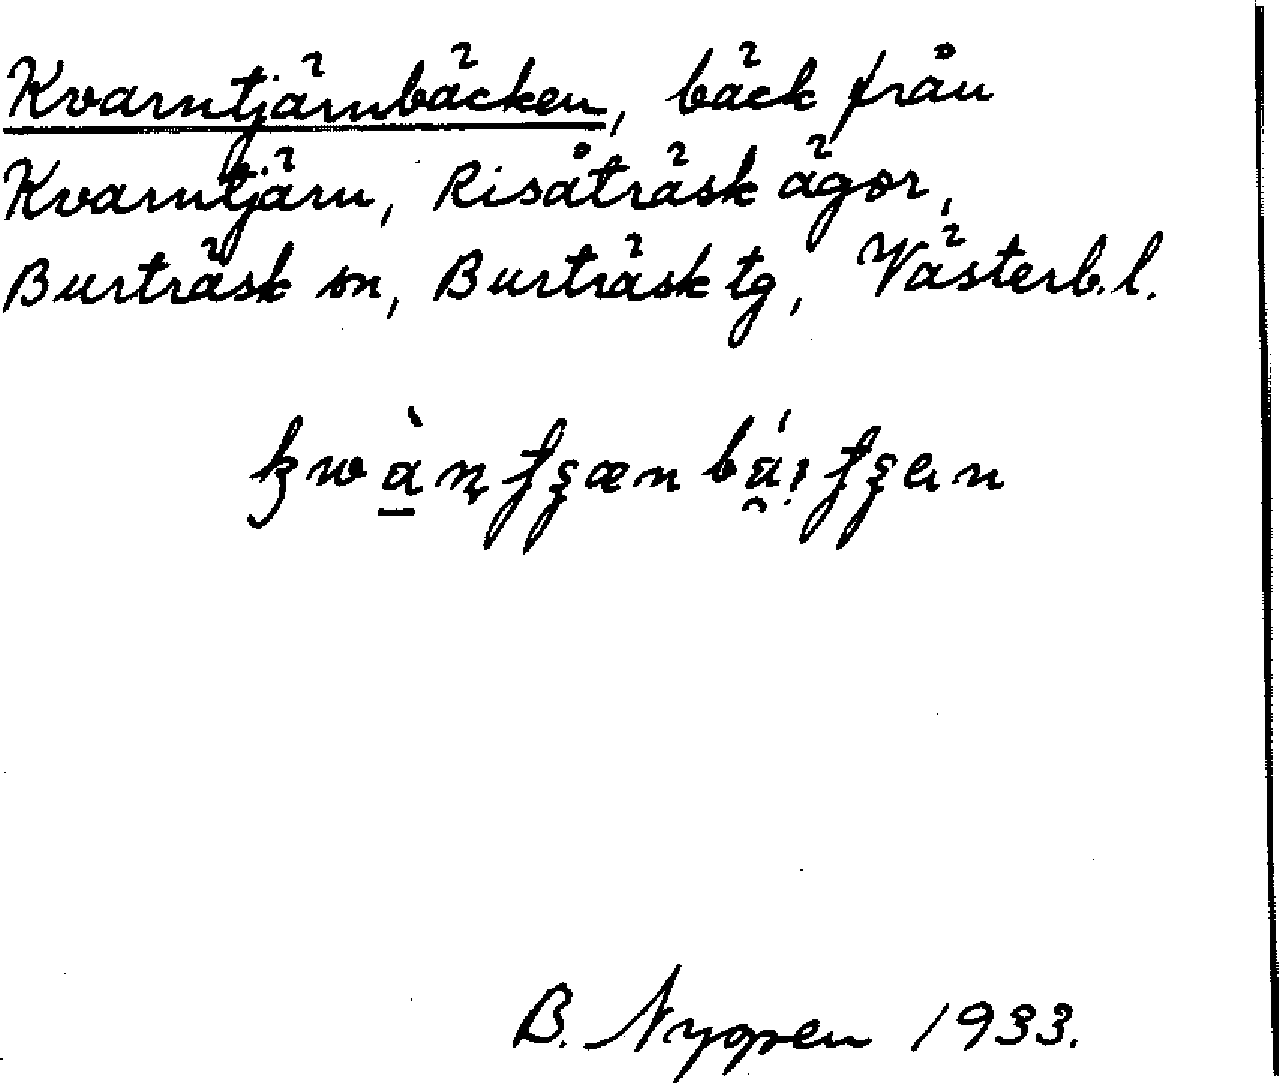 Kvarntjärnbäcken, bäck från
Kvarntjärn, Risåträsk ägor,
Burträsk sn, Burträsk tg, Västerb. l.
B. Nygren 1933.